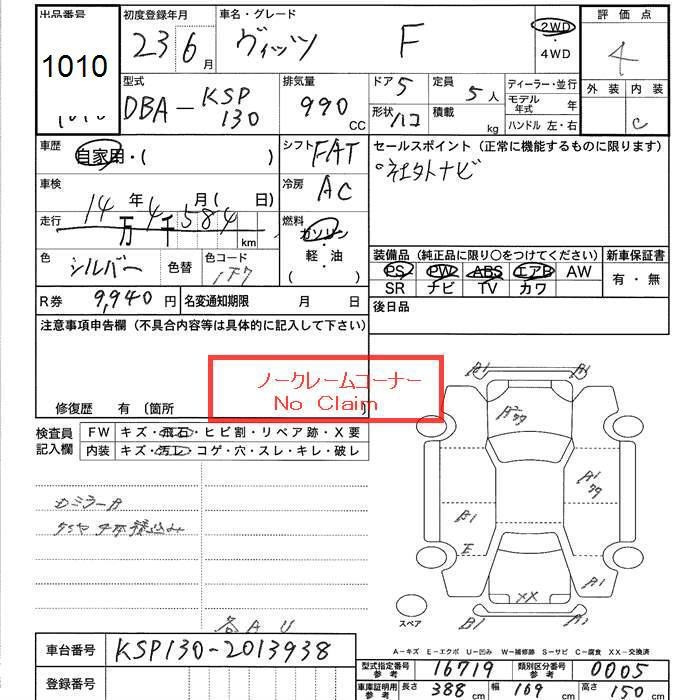 出品番号 初度登録年月 車名・グレード 評価点
1010 23 6月 ヴィッツ F 2WD・4WD 4
型式 排気量 ドア 5 定員 5人 ディーラー・並行 外装 内装
DBA-KSP130 990 CC 形状 ハコ 積載 kg モデル年式 年 C
ハンドル 左・右
車歴 自家用・( ) シフト FAT セールスポイント (正常に機能するものに限ります)
車検 年 月( 日) 冷房 AC 社外ナビ
走行 14万4千584km 燃料 ガソリン・軽油 ( )
色 シルバー 色替 色コード 1F7
装備品 (純正品に限り○をつけてください) 新車保証書
PS PW ABS エアB AW 有・無
SR ナビ TV カワ
R券 9,940円 名変通知期限 月 日 後日品
注意事項申告欄 (不具合内容等は具体的に記入して下さい)
ノークレームコーナー
No Claim
修復歴 有 〔箇所 〕
検査員記入欄 FW キズ・飛石・ヒビ割・リペア跡・X要
内装 キズ・汚レ・コゲ・穴・スレ・キレ・破レ
A1
A1
A1
A1
B1
E
XX
A1
B1
A1
スペア
各AU
A-キズ E-エクボ U-凹み W-補修跡 S-サビ C-腐食 XX-交換済
車台番号 KSP130-2013938
登録番号
型式指定番号 参考 16719 類別区分番号 参考 0005
車庫証明用 参考 長さ 388cm 幅 169cm 高さ 150cm